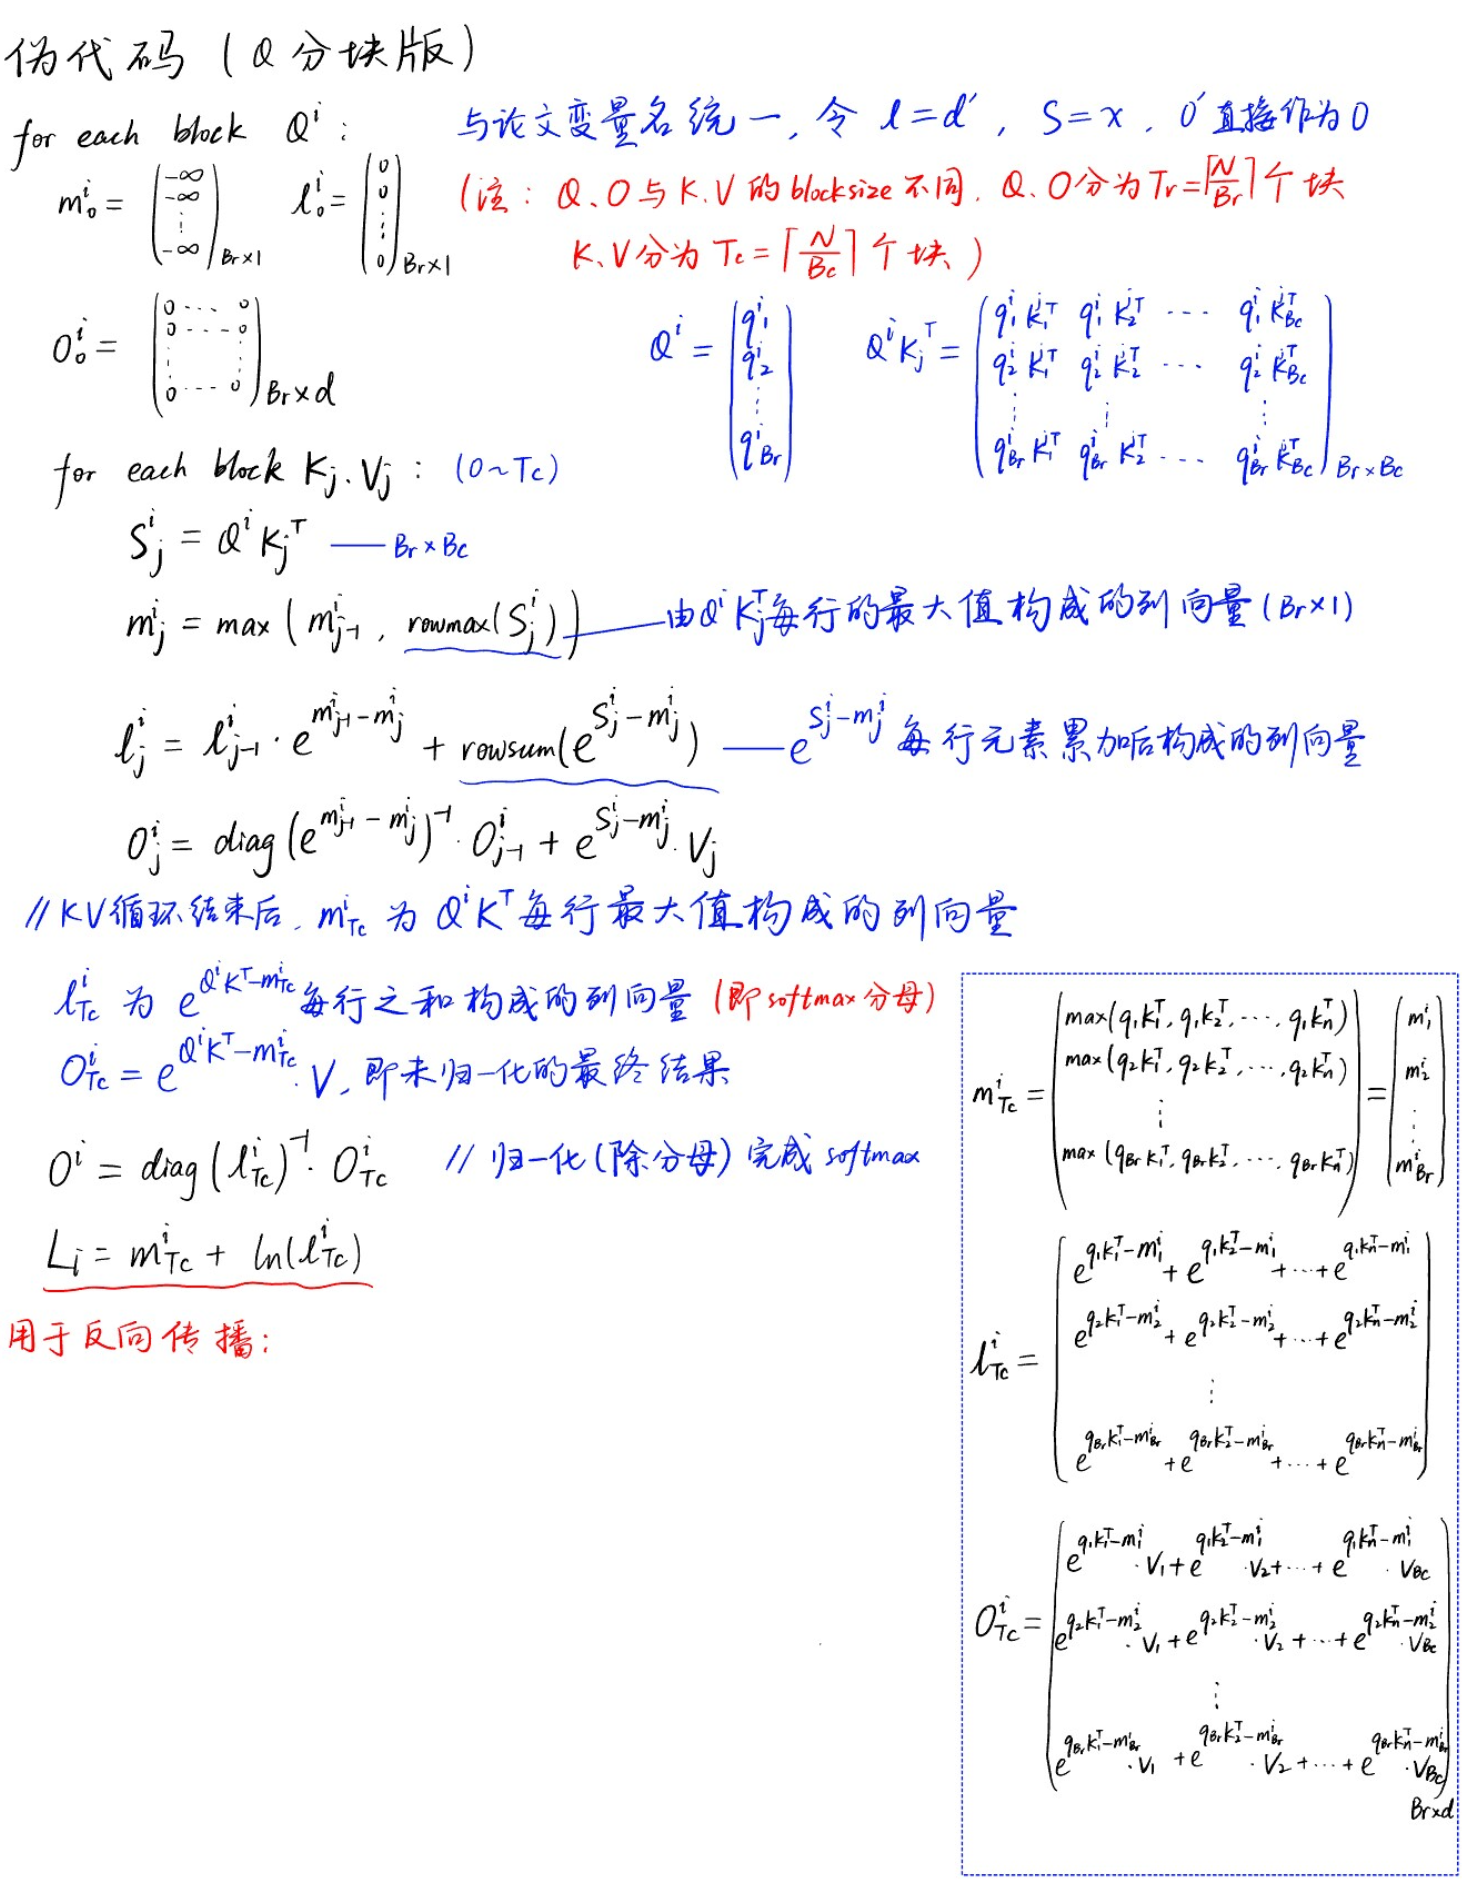 伪代码 (Q分块版)
for each block Qⁱ: 与论文变量名统一, 令 l = d′, S = x, O′直接作为O
m₀ⁱ = (-∞ -∞ ⋮ -∞)Br×1 l₀ⁱ = (0 0 ⋮ 0)Br×1 (注: Q、O与K、V的blocksize不同, Q、O分为Tr=⌈N/Br⌉个块
K、V分为 Tc = ⌈N/Bc⌉ 个块)
O₀ⁱ = (0 ⋯ 0 0 ⋯ 0 ⋮ ⋮ 0 ⋯ 0)Br×d
Qⁱ = (q₁ⁱ q₂ⁱ ⋮ q_Brⁱ)
QⁱKⱼᵀ = (q₁ⁱk₁ʲᵀ q₁ⁱk₂ʲᵀ ⋯ q₁ⁱk_Bcʲᵀ
q₂ⁱk₁ʲᵀ q₂ⁱk₂ʲᵀ ⋯ q₂ⁱk_Bcʲᵀ
⋮ ⋮ ⋮
q_Brⁱk₁ʲᵀ q_Brⁱk₂ʲᵀ ⋯ q_Brⁱk_Bcʲᵀ)Br×Bc
for each block Kⱼ、Vⱼ: (0~Tc)
Sⱼⁱ = QⁱKⱼᵀ —— Br×Bc
mⱼⁱ = max(mⱼ₋₁ⁱ, rowmax(Sⱼⁱ)) —— 由QⁱKⱼᵀ每行的最大值构成的列向量(Br×1)
lⱼⁱ = lⱼ₋₁ⁱ · e^(mⱼ₋₁ⁱ - mⱼⁱ) + rowsum(e^(Sⱼⁱ - mⱼⁱ)) —— e^(Sⱼⁱ - mⱼⁱ) 每行元素累加后构成的列向量
Oⱼⁱ = diag(e^(mⱼ₋₁ⁱ - mⱼⁱ))⁻¹ · Oⱼ₋₁ⁱ + e^(Sⱼⁱ - mⱼⁱ) · Vⱼ
// KV循环结束后, m_Tcⁱ 为 QⁱKᵀ每行最大值构成的列向量
l_Tcⁱ 为 e^(QⁱKᵀ - m_Tcⁱ) 每行之和构成的列向量 (即softmax分母)
O_Tcⁱ = e^(QⁱKᵀ - m_Tcⁱ) · V, 即未归一化的最终结果
Oⁱ = diag(l_Tcⁱ)⁻¹ · O_Tcⁱ // 归一化(除分母)完成softmax
Lᵢ = m_Tcⁱ + ln(l_Tcⁱ)
用于反向传播:
m_Tcⁱ = (max(q₁k₁ᵀ, q₁k₂ᵀ, ⋯, q₁kₙᵀ)
max(q₂k₁ᵀ, q₂k₂ᵀ, ⋯, q₂kₙᵀ)
⋮
max(q_Brk₁ᵀ, q_Brk₂ᵀ, ⋯, q_Brkₙᵀ)) = (m₁ⁱ m₂ⁱ ⋮ m_Brⁱ)
l_Tcⁱ = (e^(q₁k₁ᵀ-m₁ⁱ) + e^(q₁k₂ᵀ-m₁ⁱ) + ⋯ + e^(q₁kₙᵀ-m₁ⁱ)
e^(q₂k₁ᵀ-m₂ⁱ) + e^(q₂k₂ᵀ-m₂ⁱ) + ⋯ + e^(q₂kₙᵀ-m₂ⁱ)
⋮
e^(q_Brk₁ᵀ-m_Brⁱ) + e^(q_Brk₂ᵀ-m_Brⁱ) + ⋯ + e^(q_Brkₙᵀ-m_Brⁱ))
O_Tcⁱ = (e^(q₁k₁ᵀ-m₁ⁱ) · V₁ + e^(q₁k₂ᵀ-m₁ⁱ) · V₂ + ⋯ + e^(q₁kₙᵀ-m₁ⁱ) · V_Bc
e^(q₂k₁ᵀ-m₂ⁱ) · V₁ + e^(q₂k₂ᵀ-m₂ⁱ) · V₂ + ⋯ + e^(q₂kₙᵀ-m₂ⁱ) · V_Bc
⋮
e^(q_Brk₁ᵀ-m_Brⁱ) · V₁ + e^(q_Brk₂ᵀ-m_Brⁱ) · V₂ + ⋯ + e^(q_Brkₙᵀ-m_Brⁱ) · V_Bc)
Br×d